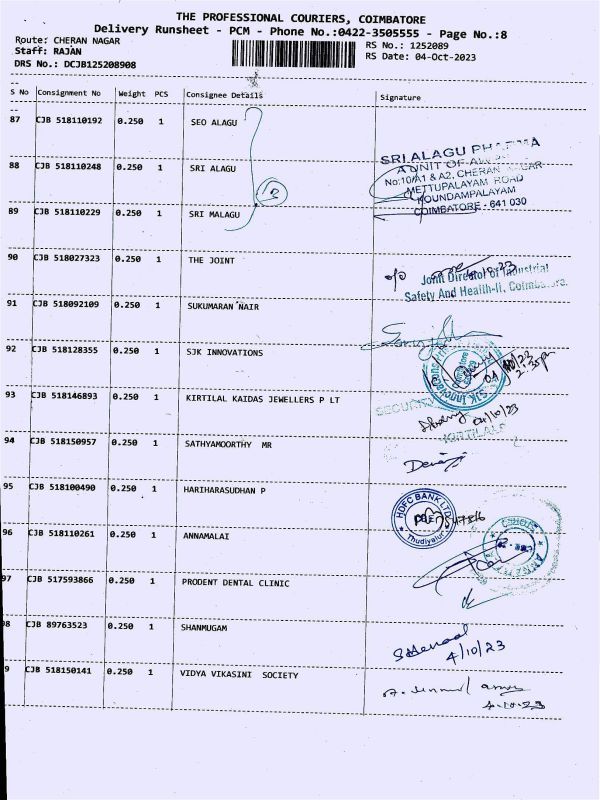 THE PROFESSIONAL COURIERS, COIMBATORE
Delivery Runsheet - PCM - Phone No.:0422-3505555 - Page No.:8
Route: CHERAN NAGAR RS No.: 1252089
Staff: RAJAN RS Date: 04-Oct-2023
DRS No.: DCJB125208908
S No Consignment No Weight PCS Consignee Details Signature
87 CJB 518110192 0.250 1 SEO ALAGU
SRI ALAGU PHARMA
A UNIT OF
88 CJB 518110248 0.250 1 SRI ALAGU
No:10/A1 & A2, CHERAN NAGAR
METTUPALAYAM ROAD
KOUNDAMPALAYAM
89 CJB 518110229 0.250 1 SRI MALAGU
COIMBATORE - 641 030
90 CJB 518027323 0.250 1 THE JOINT
o/o Joint Director of Industrial
Safety And Health-II, Coimbatore.
91 CJB 518092109 0.250 1 SUKUMARAN NAIR
92 CJB 518128355 0.250 1 SJK INNOVATIONS
SJK Innovations
93 CJB 518146893 0.250 1 KIRTILAL KAIDAS JEWELLERS P LT
SECURITY
04/10/23
KIRTILAL
94 CJB 518150957 0.250 1 SATHYAMOORTHY MR
95 CJB 518100490 0.250 1 HARIHARASUDHAN P
HDFC BANK LTD
Thudiyalur
96 CJB 518110261 0.250 1 ANNAMALAI
97 CJB 517593866 0.250 1 PRODENT DENTAL CLINIC
98 CJB 89763523 0.250 1 SHANMUGAM
4/10/23
9 CJB 518150141 0.250 1 VIDYA VIKASINI SOCIETY
4.10.23